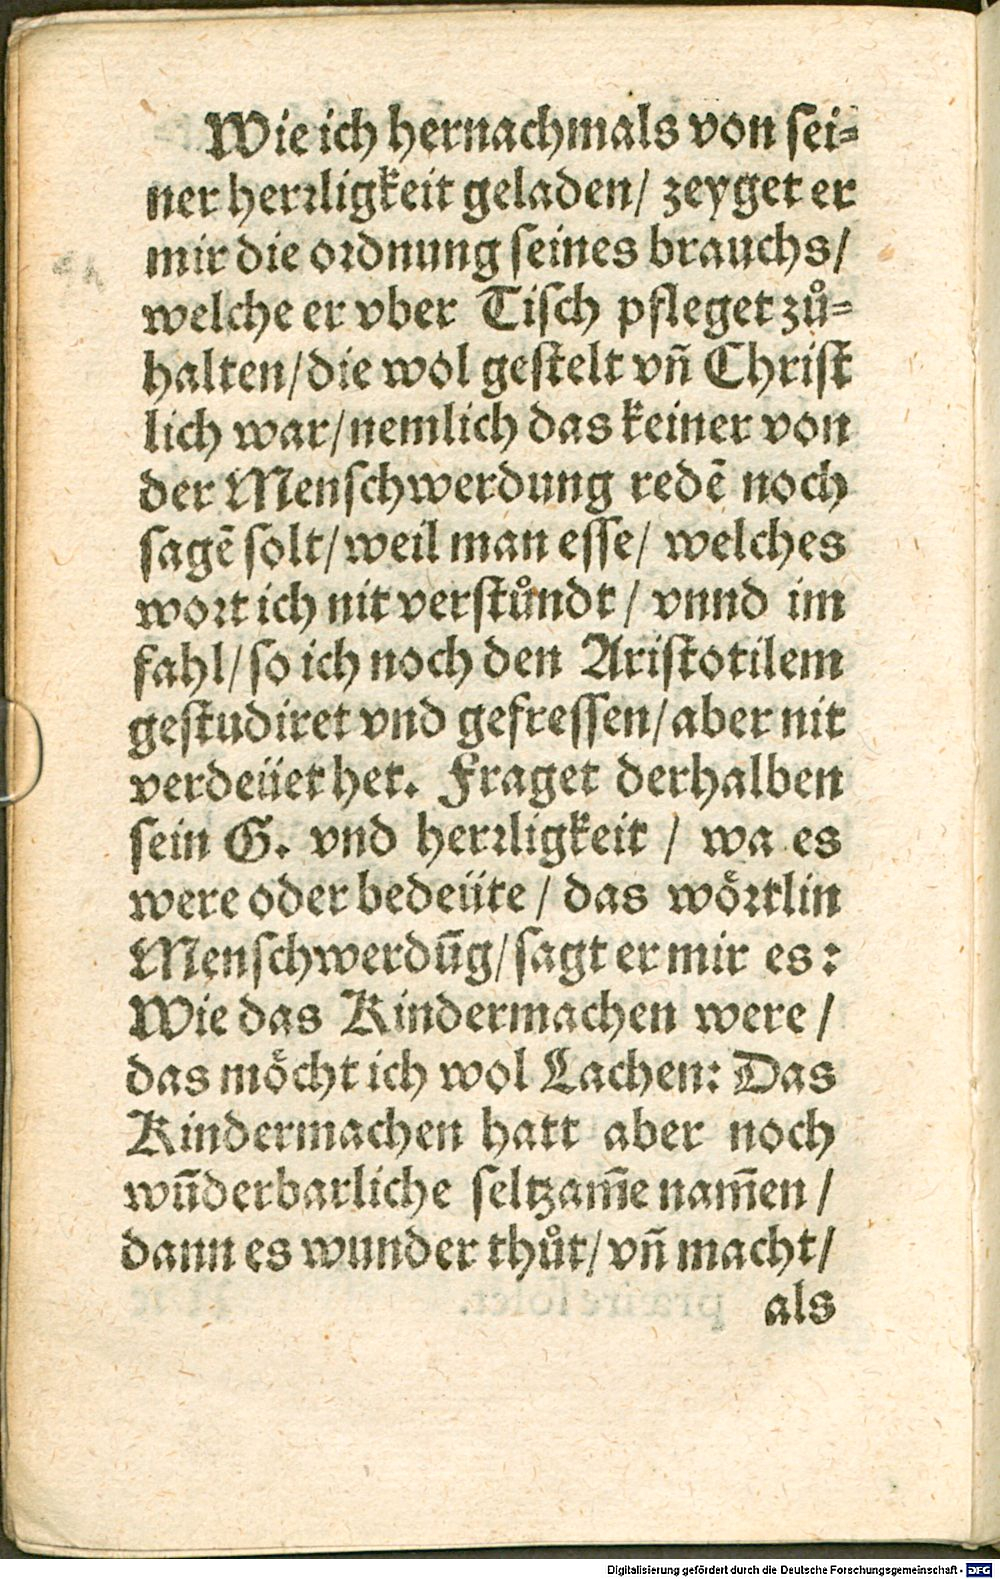 Wie ich hernachmals von ſei⸗
ner herꝛligkeit geladen/ zeyget er
mir die oꝛdnung ſeines brauchs/
welche er vber Tiſch pfleget zuͦ⸗
halten/die wol geſtelt vn̄ Chriſt
lich war/nemlich das keiner von
der Menſchwerdung redē noch
ſagē ſolt/weil man eſſe/ welches
woꝛt ich nit verſtuͦndt/ vnnd im
fahl/ſo ich noch den Ariſtotilem
geſtudiret vnd gefreſſen/aber nit
verdeüet het. Fraget derhalben
ſein G. vnd herꝛligkeit / wa es
were oder bedeüte/ das woͤꝛtlin
Menſchwerdūg/ſagt er mir es:
Wie das Kindermachen were/
das moͤcht ich wol Lachen: Das
Kindermachen hatt aber noch
wūderbarliche ſeltzam̄e nam̄en/
dann es wunder thuͦt/vn̄ macht/
als
Digitalisierung gefördert durch die Deutsche Forschungsgemeinschaft - DFG